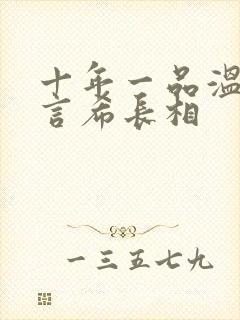 十年一品温
言希长相
一三五七九